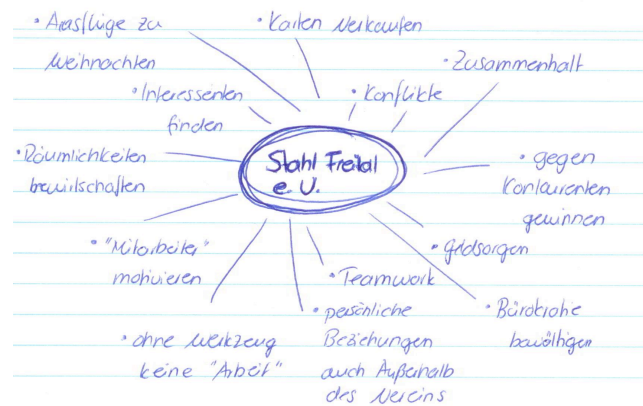 • Ausflüge zu
Weihnachten
• Karten Verkaufen
• Zusammenhalt
• Interessenten
finden
• Konflikte
• Räumlichkeiten
bewirtschaften
Stahl Freital
e.V.
• gegen
Konkurenten
gewinnen
• "Mitarbeiter"
motivieren
• Geldsorgen
• Teamwork
• Bürokratie
bewältigen
• ohne Werkzeug
keine "Arbeit"
• persönliche
Beziehungen
auch Außerhalb
des Vereins